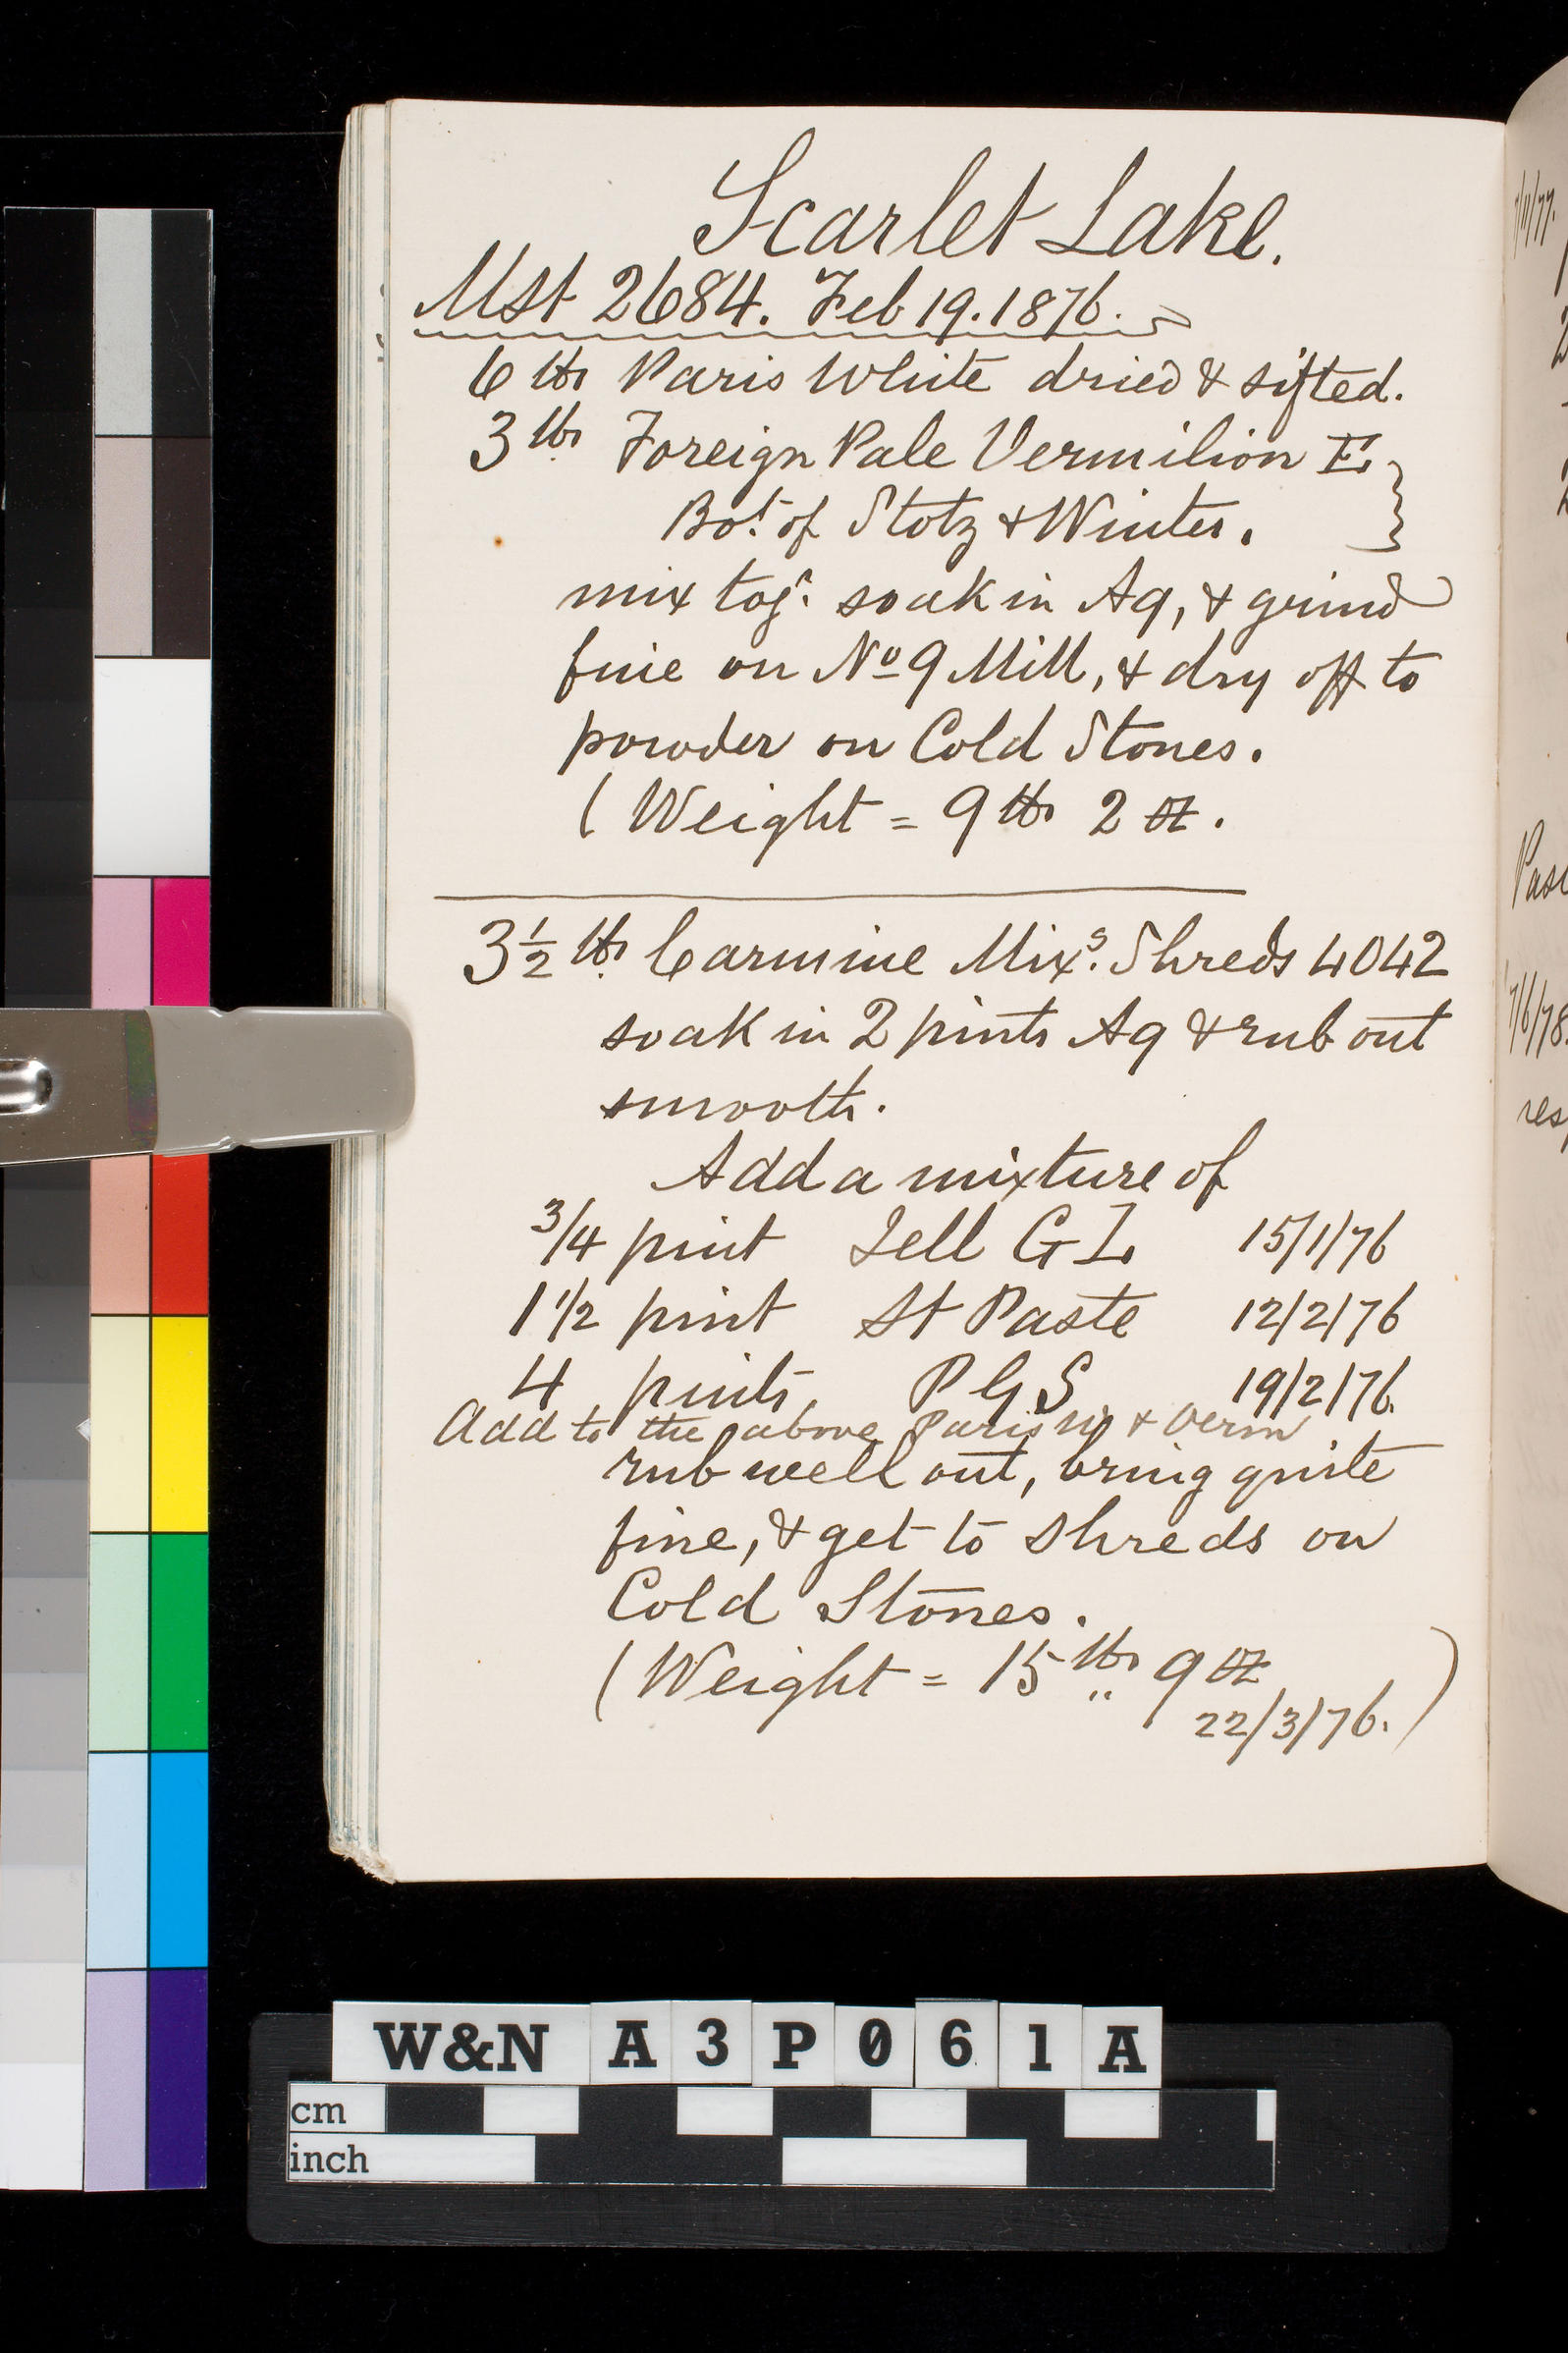 Scarlet Lake.
Mst 2684. Feb 19. 1876.
6 lbs Paris White dried & sifted.
3 lbs Foreign Pale Vermilion E
Bot. of Stotz & Winter.
mix togr. soak in Aq, & grind
fine on No 9 Mill, & dry off to
powder on Cold Stones.
( Weight = 9 lbs 2 oz.
3 1/2 lbs Carmine Mixs. Shreds 4042
soak in 2 pints Aq & rub out
smooth.
Add a mixture of
3/4 pint Jell G L 15/1/76
1 1/2 pint St Paste 12/2/76
4 pints P G S 19/2/76.
Add to the above Paris W & Verm
rub well out, bring quite
fine, & get to shreds on
Cold Stones.
( Weight = 15 lbs 9 oz
22/3/76. )
7/11/77.
2
2
7/6/78.
W&N A 3 P 0 6 1 A
cm
inch